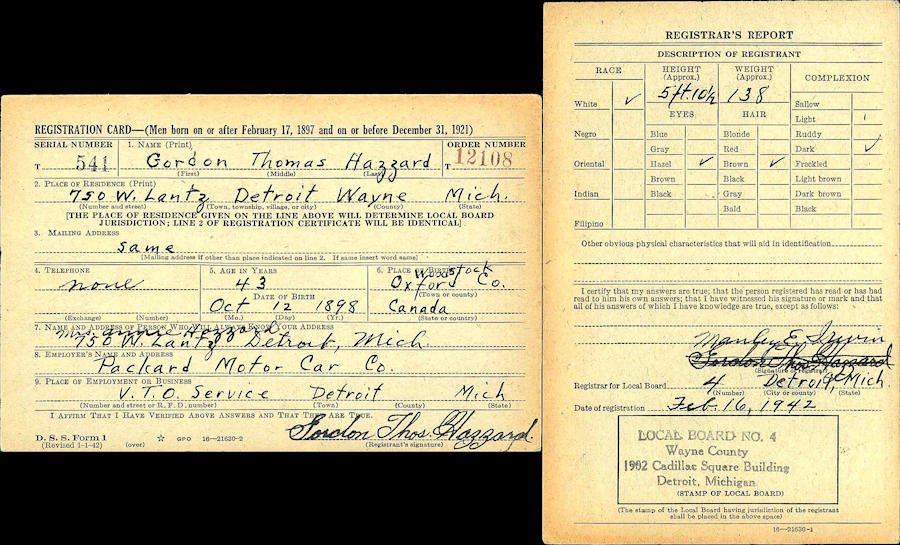 REGISTRATION CARD—(Men born on or after February 17, 1897 and on or before December 31, 1921)
SERIAL NUMBER 1. NAME (Print) ORDER NUMBER
T 541 Gordon Thomas Hazzard T 12108
(First) (Middle) (Last)
2. PLACE OF RESIDENCE (Print)
750 W. Lantz Detroit Wayne Mich.
(Number and street) (Town, township, village, or city) (County) (State)
[THE PLACE OF RESIDENCE GIVEN ON THE LINE ABOVE WILL DETERMINE LOCAL BOARD
JURISDICTION; LINE 2 OF REGISTRATION CERTIFICATE WILL BE IDENTICAL]
3. MAILING ADDRESS
same
[Mailing address if other than place indicated on line 2. If same insert word same]
4. TELEPHONE 5. AGE IN YEARS 6. PLACE OF BIRTH
Woodstock
none 43 Oxford Co.
(Town or county)
DATE OF BIRTH
Oct 12 1898 Canada
(Exchange) (Number) (Mo.) (Day) (Yr.) (State or country)
7. NAME AND ADDRESS OF PERSON WHO WILL ALWAYS KNOW YOUR ADDRESS
Mrs. Annie Hazzard
750 W. Lantz Detroit, Mich.
8. EMPLOYER'S NAME AND ADDRESS
Packard Motor Car Co.
9. PLACE OF EMPLOYMENT OR BUSINESS
V.T.O. Service Detroit Mich
(Number and street or R. F. D. number) (Town) (County) (State)
I AFFIRM THAT I HAVE VERIFIED ABOVE ANSWERS AND THAT THEY ARE TRUE.
Gordon Thos. Hazzard.
D. S. S. Form 1 GPO 16—21630-2 (Registrant's signature)
(Revised 1-1-42) (over)
REGISTRAR'S REPORT
DESCRIPTION OF REGISTRANT
RACE HEIGHT (Approx.) WEIGHT (Approx.) COMPLEXION
5 ft. 10½ 138
White ✓ EYES HAIR Sallow
Light
Negro Blue Blonde Ruddy
Gray Red Dark ✓
Oriental Hazel ✓ Brown ✓ Freckled
Brown Black Light brown
Indian Black Gray Dark brown
Bald Black
Filipino
Other obvious physical characteristics that will aid in identification
I certify that my answers are true; that the person registered has read or has had
read to him his own answers; that I have witnessed his signature or mark and that
all of his answers of which I have knowledge are true, except as follows:
Manley E. Irwin
Gordon Thos Hazzard
(Signature of registrar)
Registrar for Local Board 4 Detroit Mich
(Number) (City or county) (State)
Date of registration Feb. 16, 1942
LOCAL BOARD NO. 4
Wayne County
1902 Cadillac Square Building
Detroit, Michigan
(STAMP OF LOCAL BOARD)
(The stamp of the Local Board having jurisdiction of the registrant
shall be placed in the above space)
16—21630-1